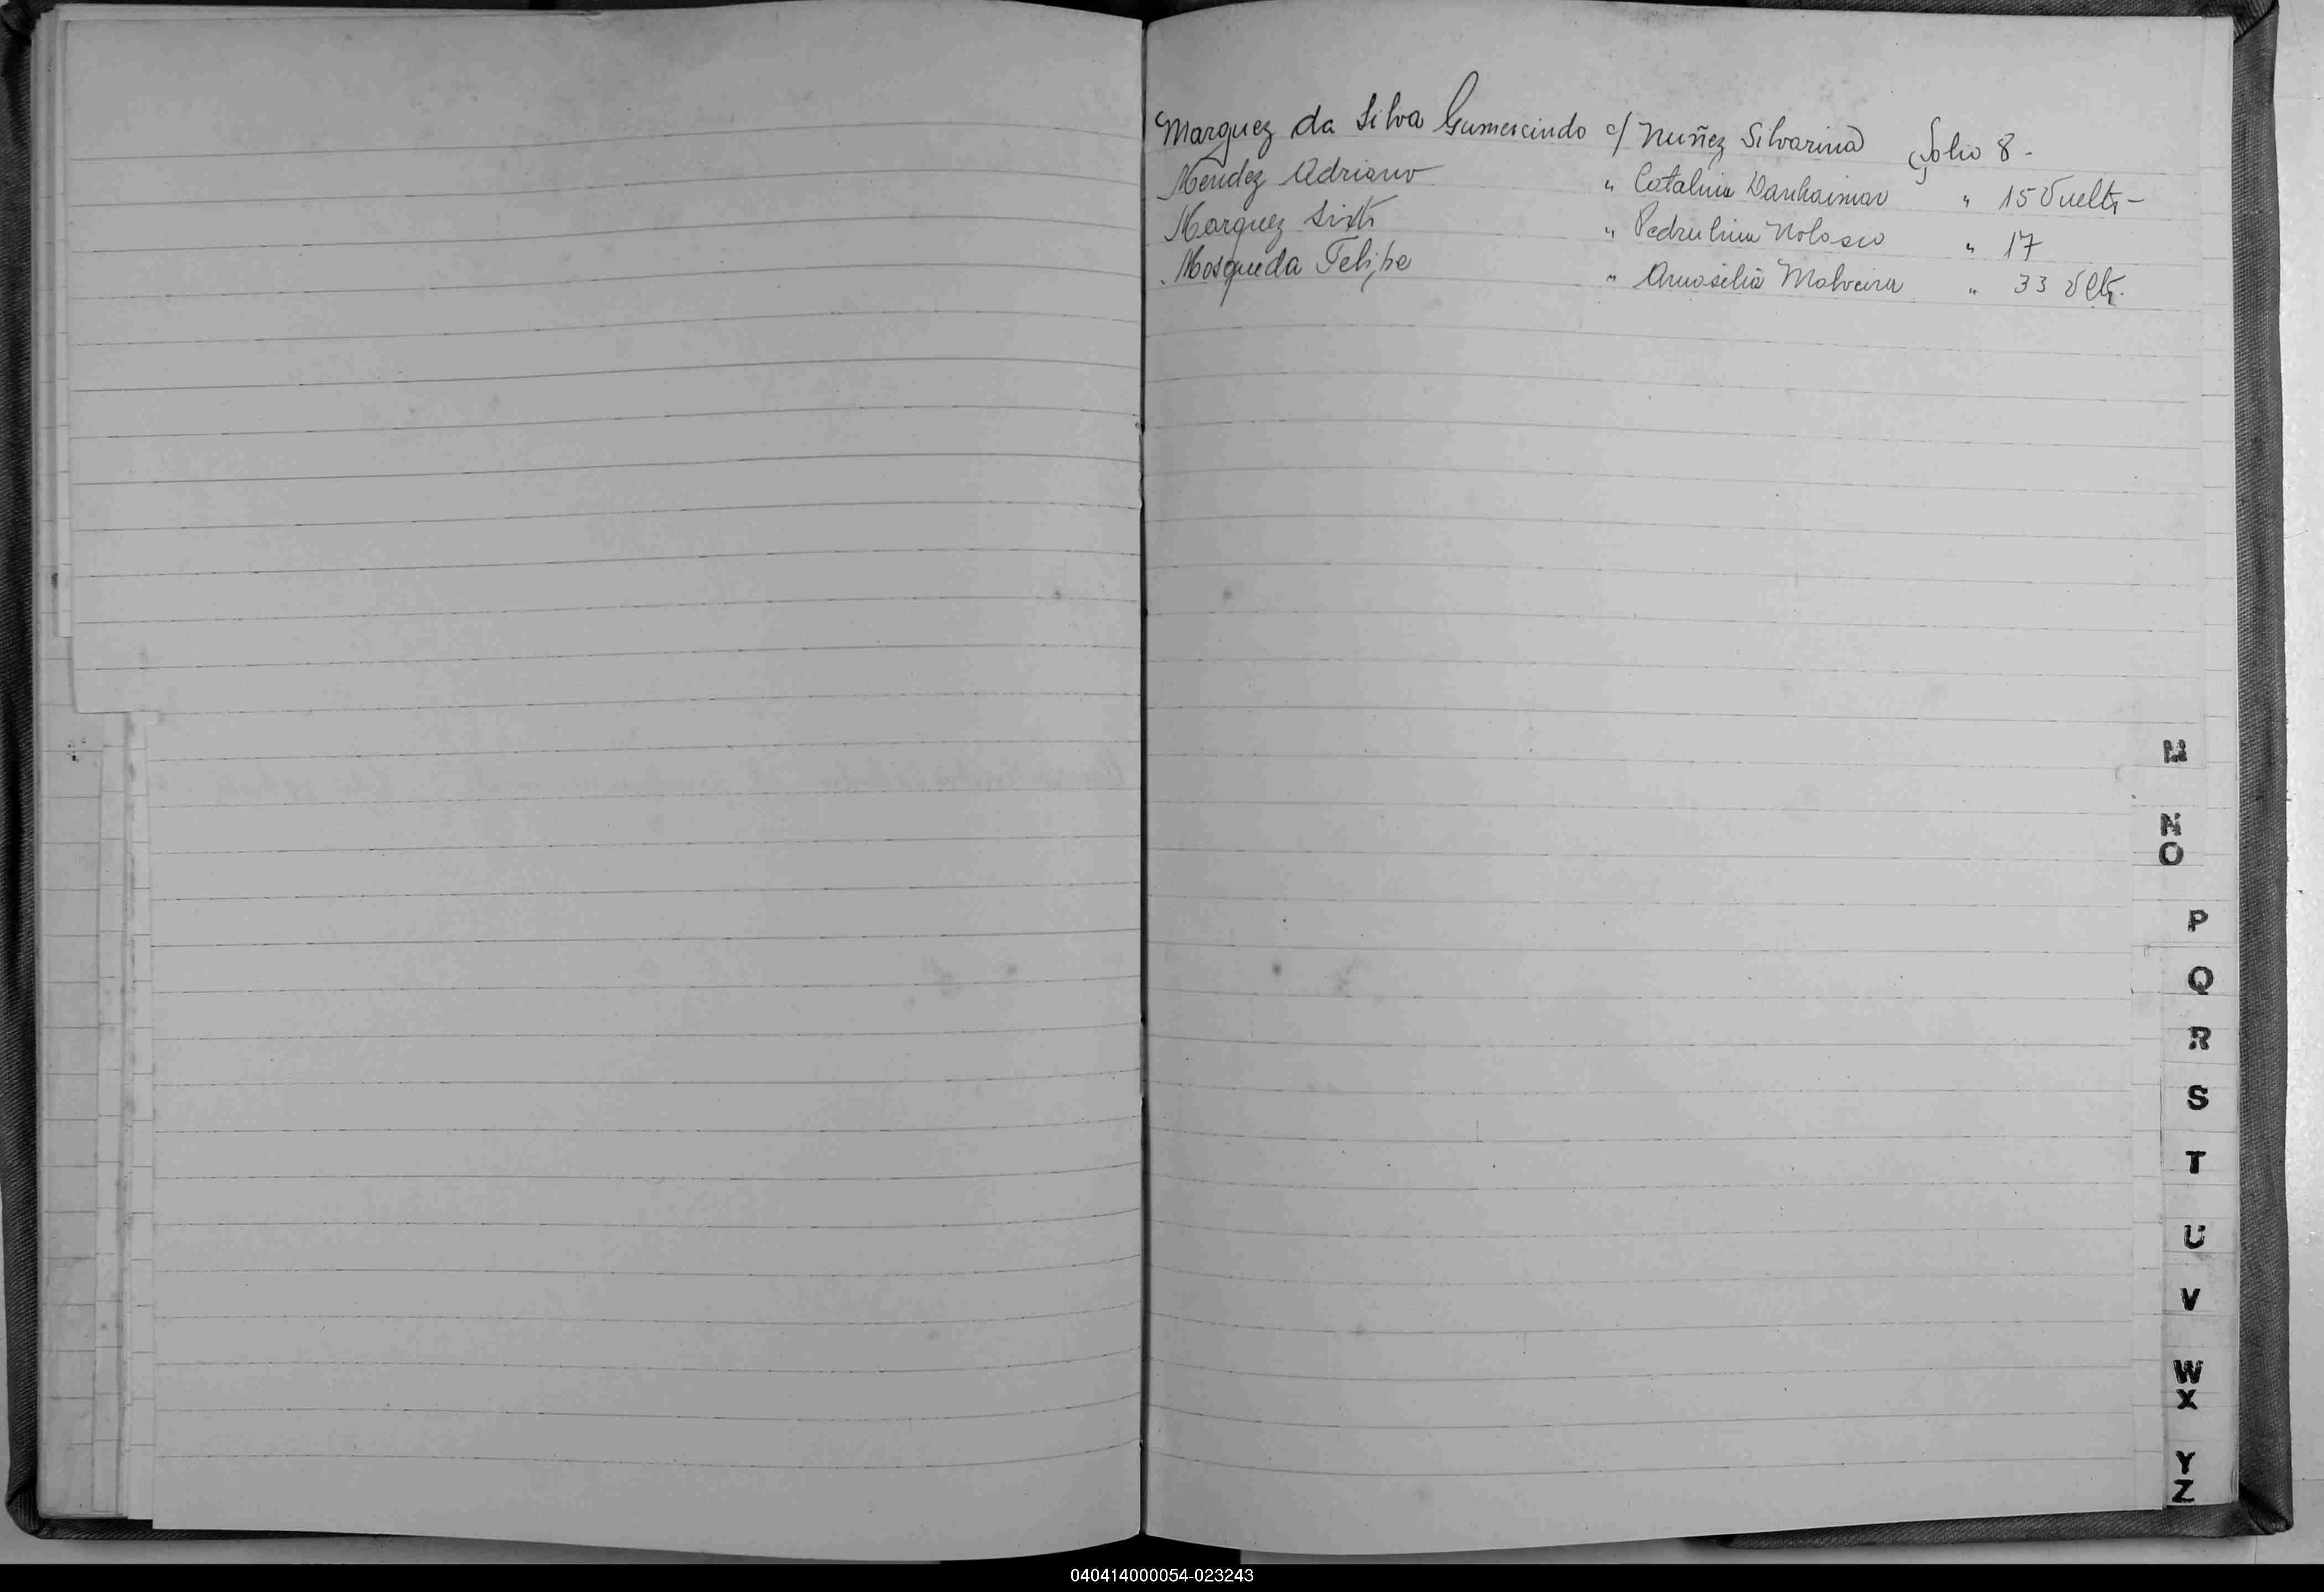 Marquez da Silva Gumercindo c/ Nuñez Silvarina folio 8 -
Mendez Adriano " Catalina " 15 Vuelta -
Marquez Sixto " Pedrulina Nolasco " 17
Mosqueda Felipe " Malveira " 33 Vlta.
M
N
O
P
Q
R
S
T
U
V
W
X
Y
Z
040414000054-023243